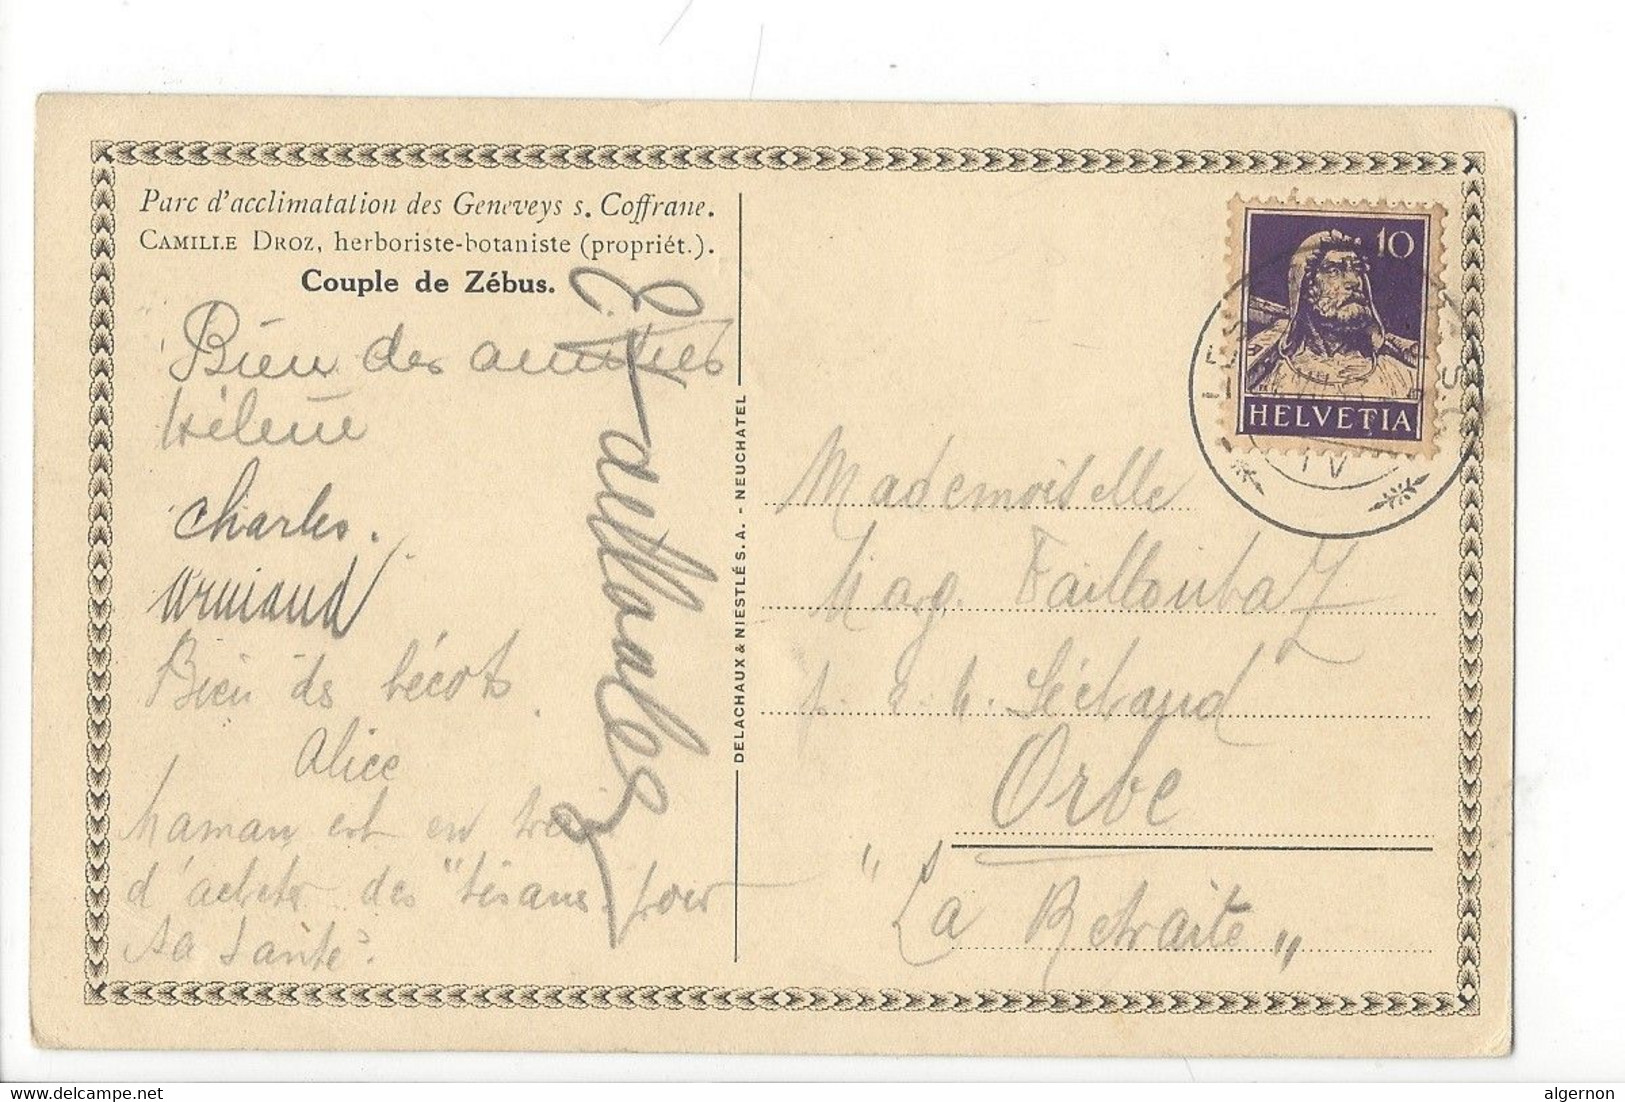 Parc d'acclimatation des Geneveys s. Coffrane.
CAMILLE DROZ, herboriste-botaniste (propriét.).
Couple de Zébus.
Bien des amitiés
Hélène
Charles.
Armand
Bien ds bécots
Alice
Maman est en train
d'acheter des "tisanes pour
sa santé".
DELACHAUX & NIESTLÉ S.A. - NEUCHATEL
10
HELVETIA
IV
Mademoiselle
Marg. Tailloubaz
Orbe
"La Retraite"
delcampe.net
algernon